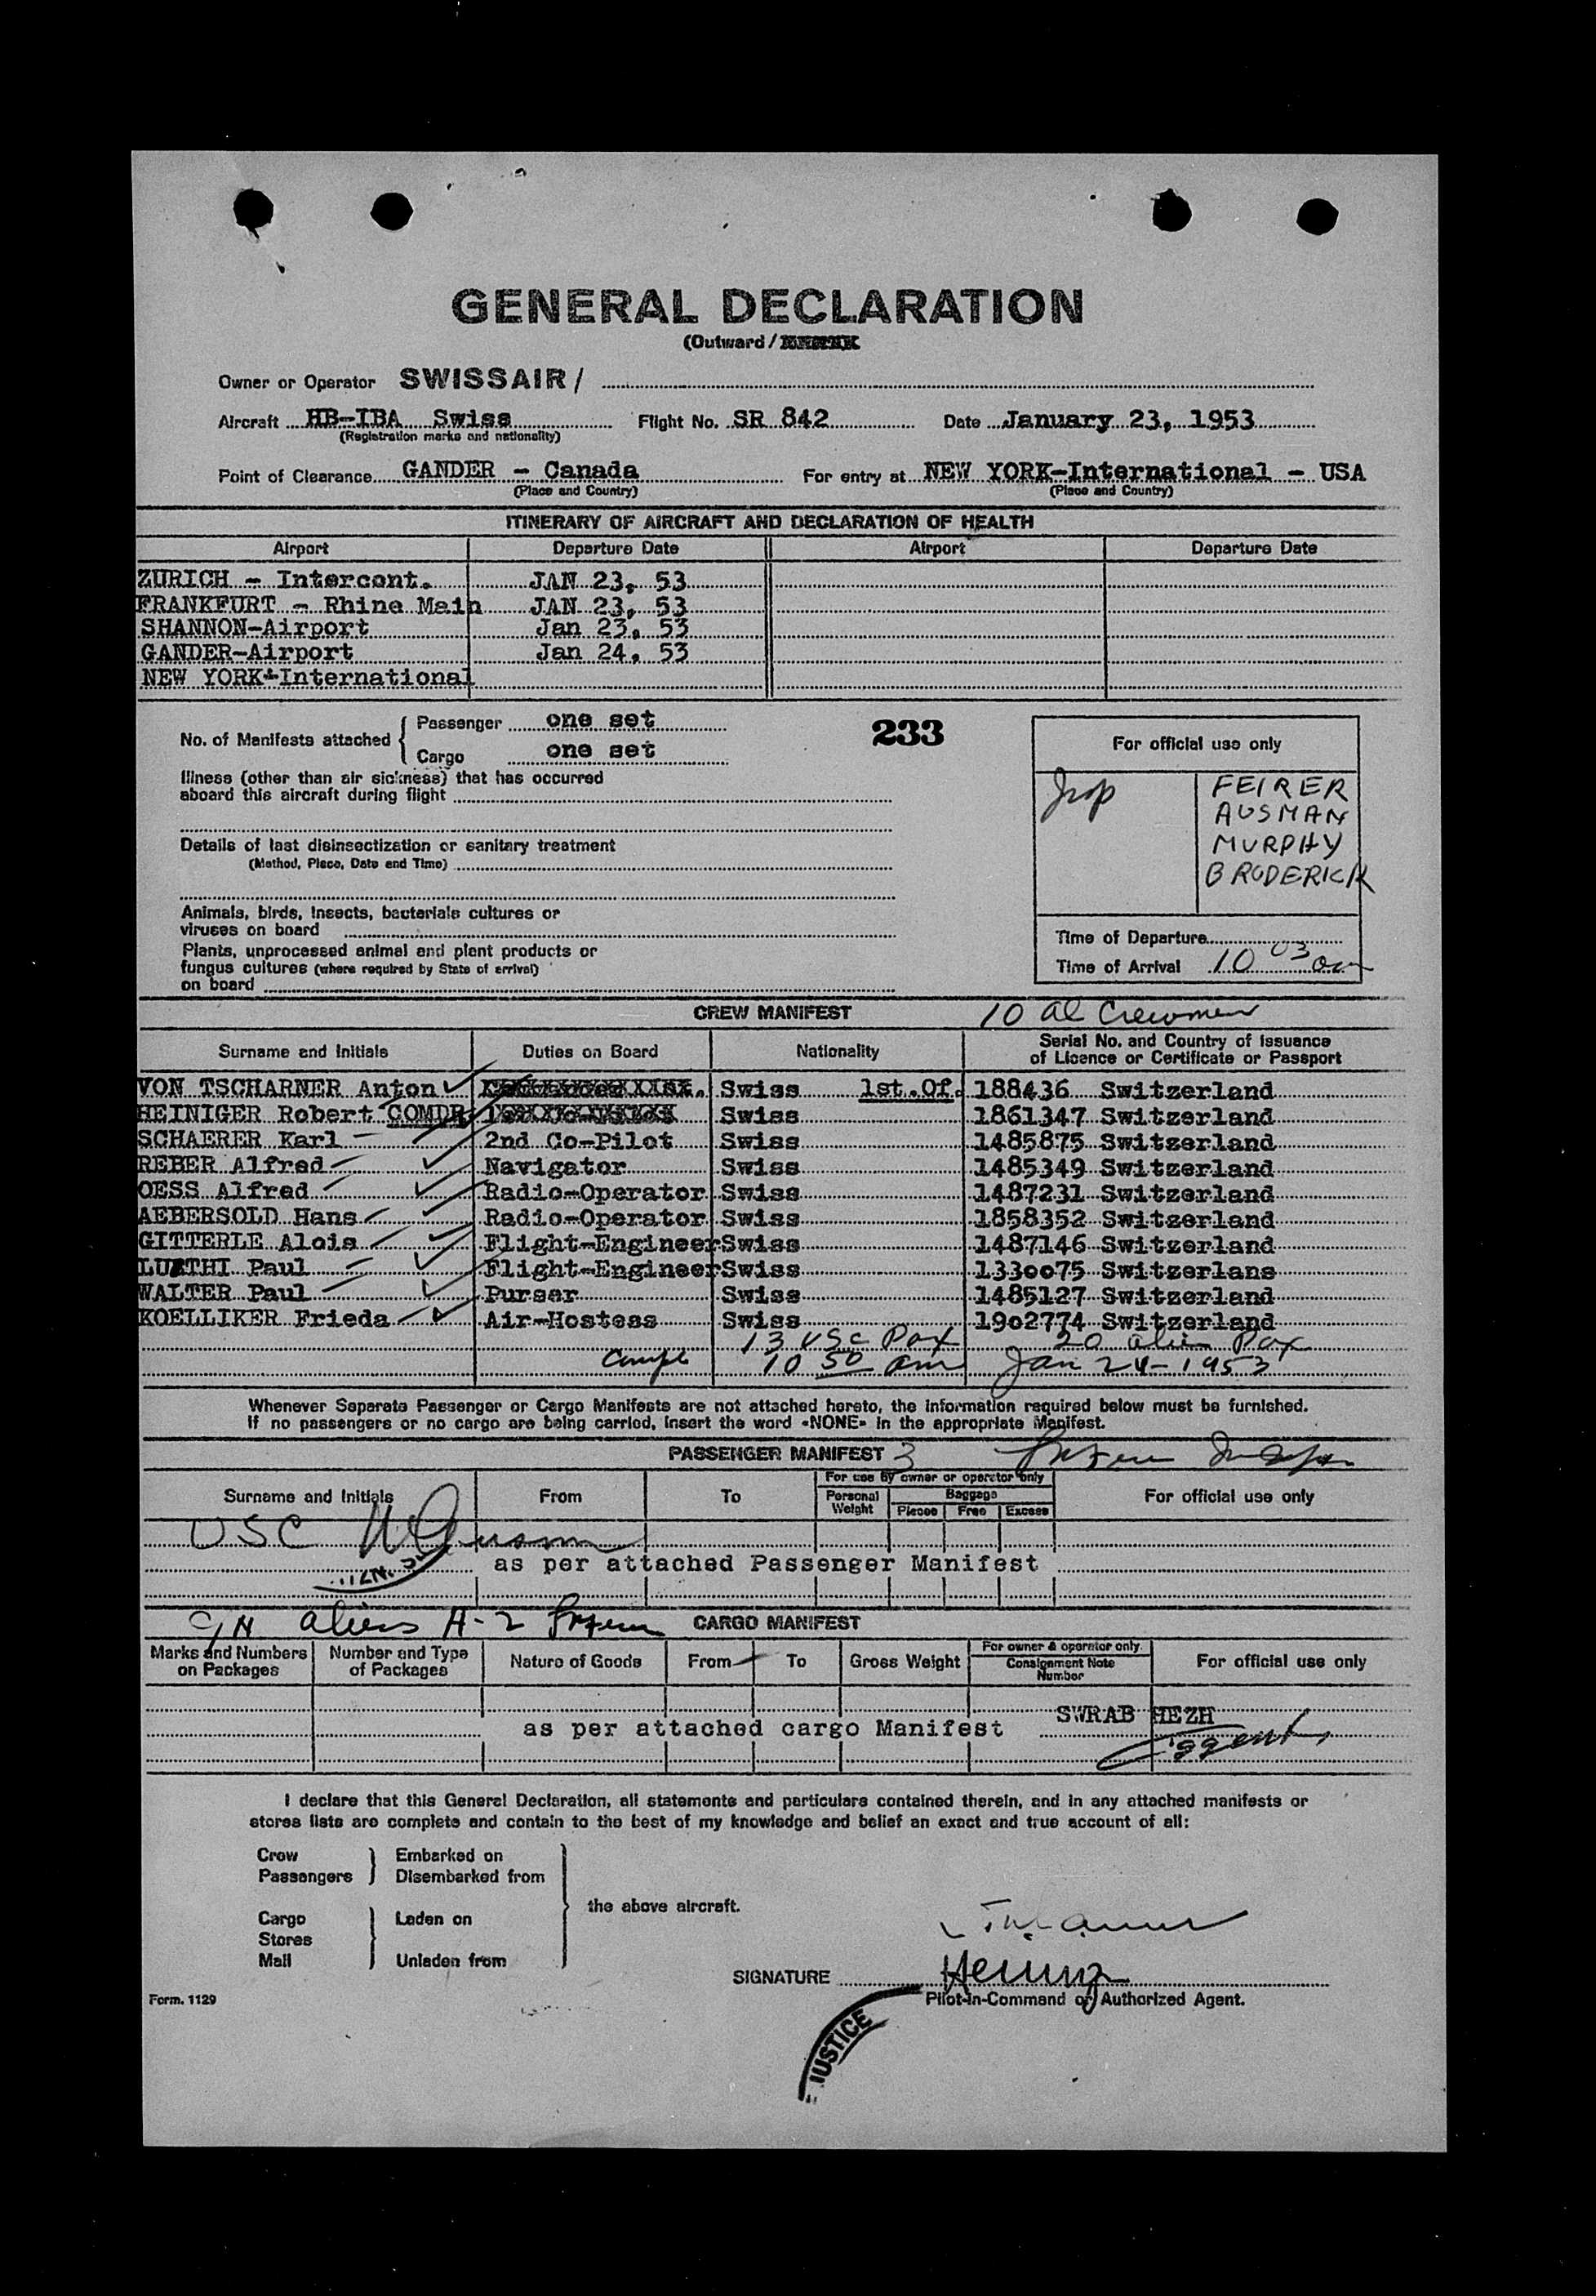 GENERAL DECLARATION
(Outward /
Owner or Operator SWISSAIR /
Aircraft HB-IBA Swiss Flight No. SR 842 Date January 23, 1953
(Registration marks and nationality)
Point of Clearance GANDER - Canada For entry at NEW YORK-International - USA
(Place and Country) (Place and Country)
ITINERARY OF AIRCRAFT AND DECLARATION OF HEALTH
Airport Departure Date Airport Departure Date
ZURICH - Intercont. JAN 23, 53
FRANKFURT - Rhine Main JAN 23, 53
SHANNON-Airport Jan 23, 53
GANDER-Airport Jan 24, 53
NEW YORK-International
No. of Manifests attached { Passenger one set
Cargo one set
233
For official use only
Illness (other than air sickness) that has occurred
aboard this aircraft during flight
FEIRER
AUSMAN
MURPHY
BRODERICK
Details of last disinsectization or sanitary treatment
(Method, Place, Date and Time)
Animals, birds, insects, bacterials cultures or
viruses on board
Plants, unprocessed animal and plant products or
fungus cultures (where required by State of arrival)
on board
Time of Departure
Time of Arrival 10 03 am
CREW MANIFEST 10 al Crewmen
Surname and Initials Duties on Board Nationality Serial No. and Country of Issuance
of Licence or Certificate or Passport
VON TSCHARNER Anton Swiss 1st.Of. 188436 Switzerland
HEINIGER Robert COMDR Swiss 1861347 Switzerland
SCHAERER Karl 2nd Co-Pilot Swiss 1485875 Switzerland
REBER Alfred Navigator Swiss 1485349 Switzerland
OESS Alfred Radio-Operator Swiss 1487231 Switzerland
AEBERSOLD Hans Radio-Operator Swiss 1858352 Switzerland
GITTERLE Alois Flight-Engineer Swiss 1487146 Switzerland
LUETHI Paul Flight-Engineer Swiss 1330075 Switzerlans
WALTER Paul Purser Swiss 1485127 Switzerland
KOELLIKER Frieda Air-Hostess Swiss 1902774 Switzerland
13 USC Pax 20 alien Pax
Compl 10 50 am Jan 24-1953
Whenever Separate Passenger or Cargo Manifests are not attached hereto, the information required below must be furnished.
If no passengers or no cargo are being carried, insert the word «NONE» in the appropriate Manifest.
PASSENGER MANIFEST 3
Surname and Initials From To For use by owner or operator only For official use only
Personal Weight Baggage
Pieces Free Excess
USC
as per attached Passenger Manifest
aliens A-2 CARGO MANIFEST
Marks and Numbers on Packages Number and Type of Packages Nature of Goods From To Gross Weight For owner & operator only. Consignment Note Number For official use only
SWRAB HEZH
as per attached cargo Manifest
I declare that this General Declaration, all statements and particulars contained therein, and in any attached manifests or
stores lists are complete and contain to the best of my knowledge and belief an exact and true account of all:
Crew } Embarked on
Passengers } Disembarked from
the above aircraft.
Cargo } Laden on
Stores
Mail } Unladen from
SIGNATURE
Form. 1129 Pilot-in-Command or Authorized Agent.
JUSTICE